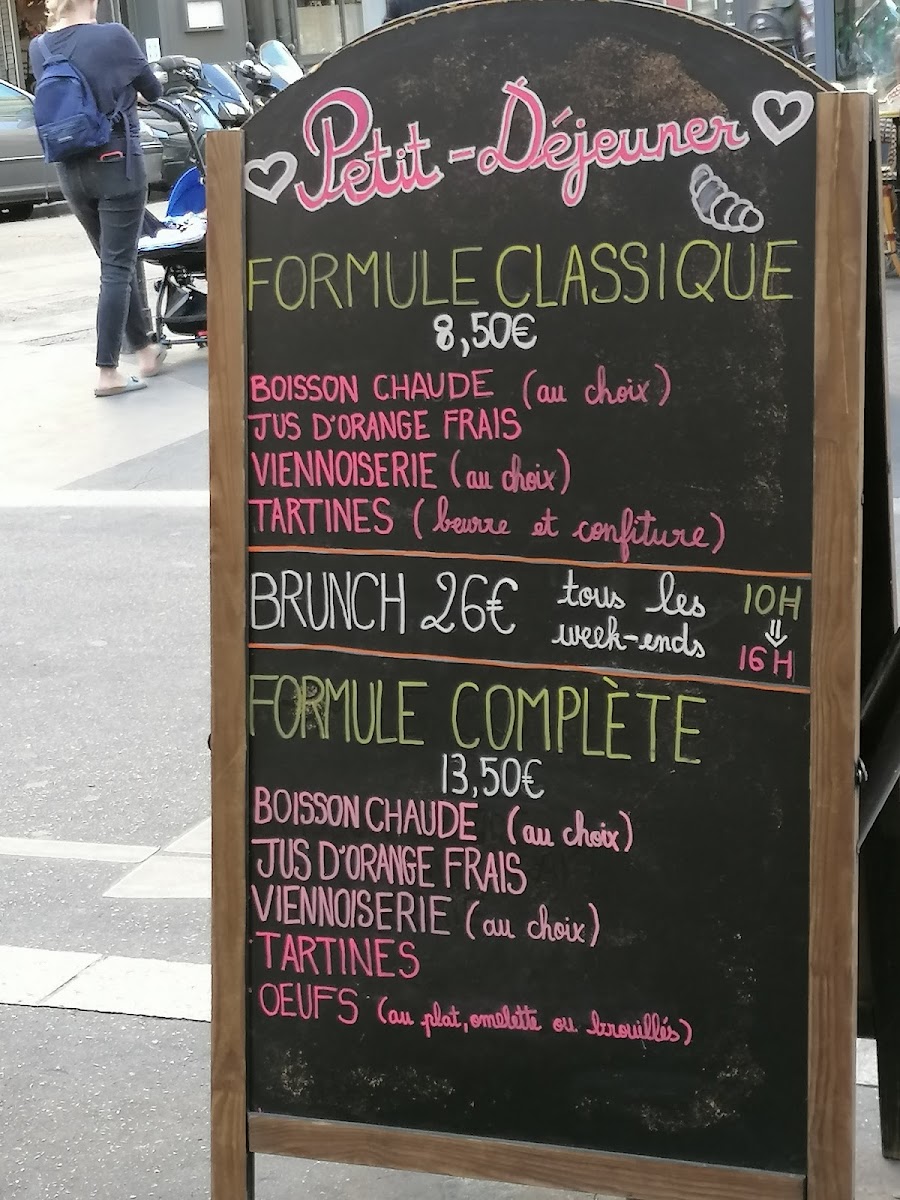 Petit-Déjeuner
FORMULE CLASSIQUE
8,50€
BOISSON CHAUDE (au choix)
JUS D'ORANGE FRAIS
VIENNOISERIE (au choix)
TARTINES (beurre et confiture)
BRUNCH 26€ tous les week-ends 10H ⇓ 16H
FORMULE COMPLÈTE
13,50€
BOISSON CHAUDE (au choix)
JUS D'ORANGE FRAIS
VIENNOISERIE (au choix)
TARTINES
OEUFS (au plat, omelette ou brouillés)